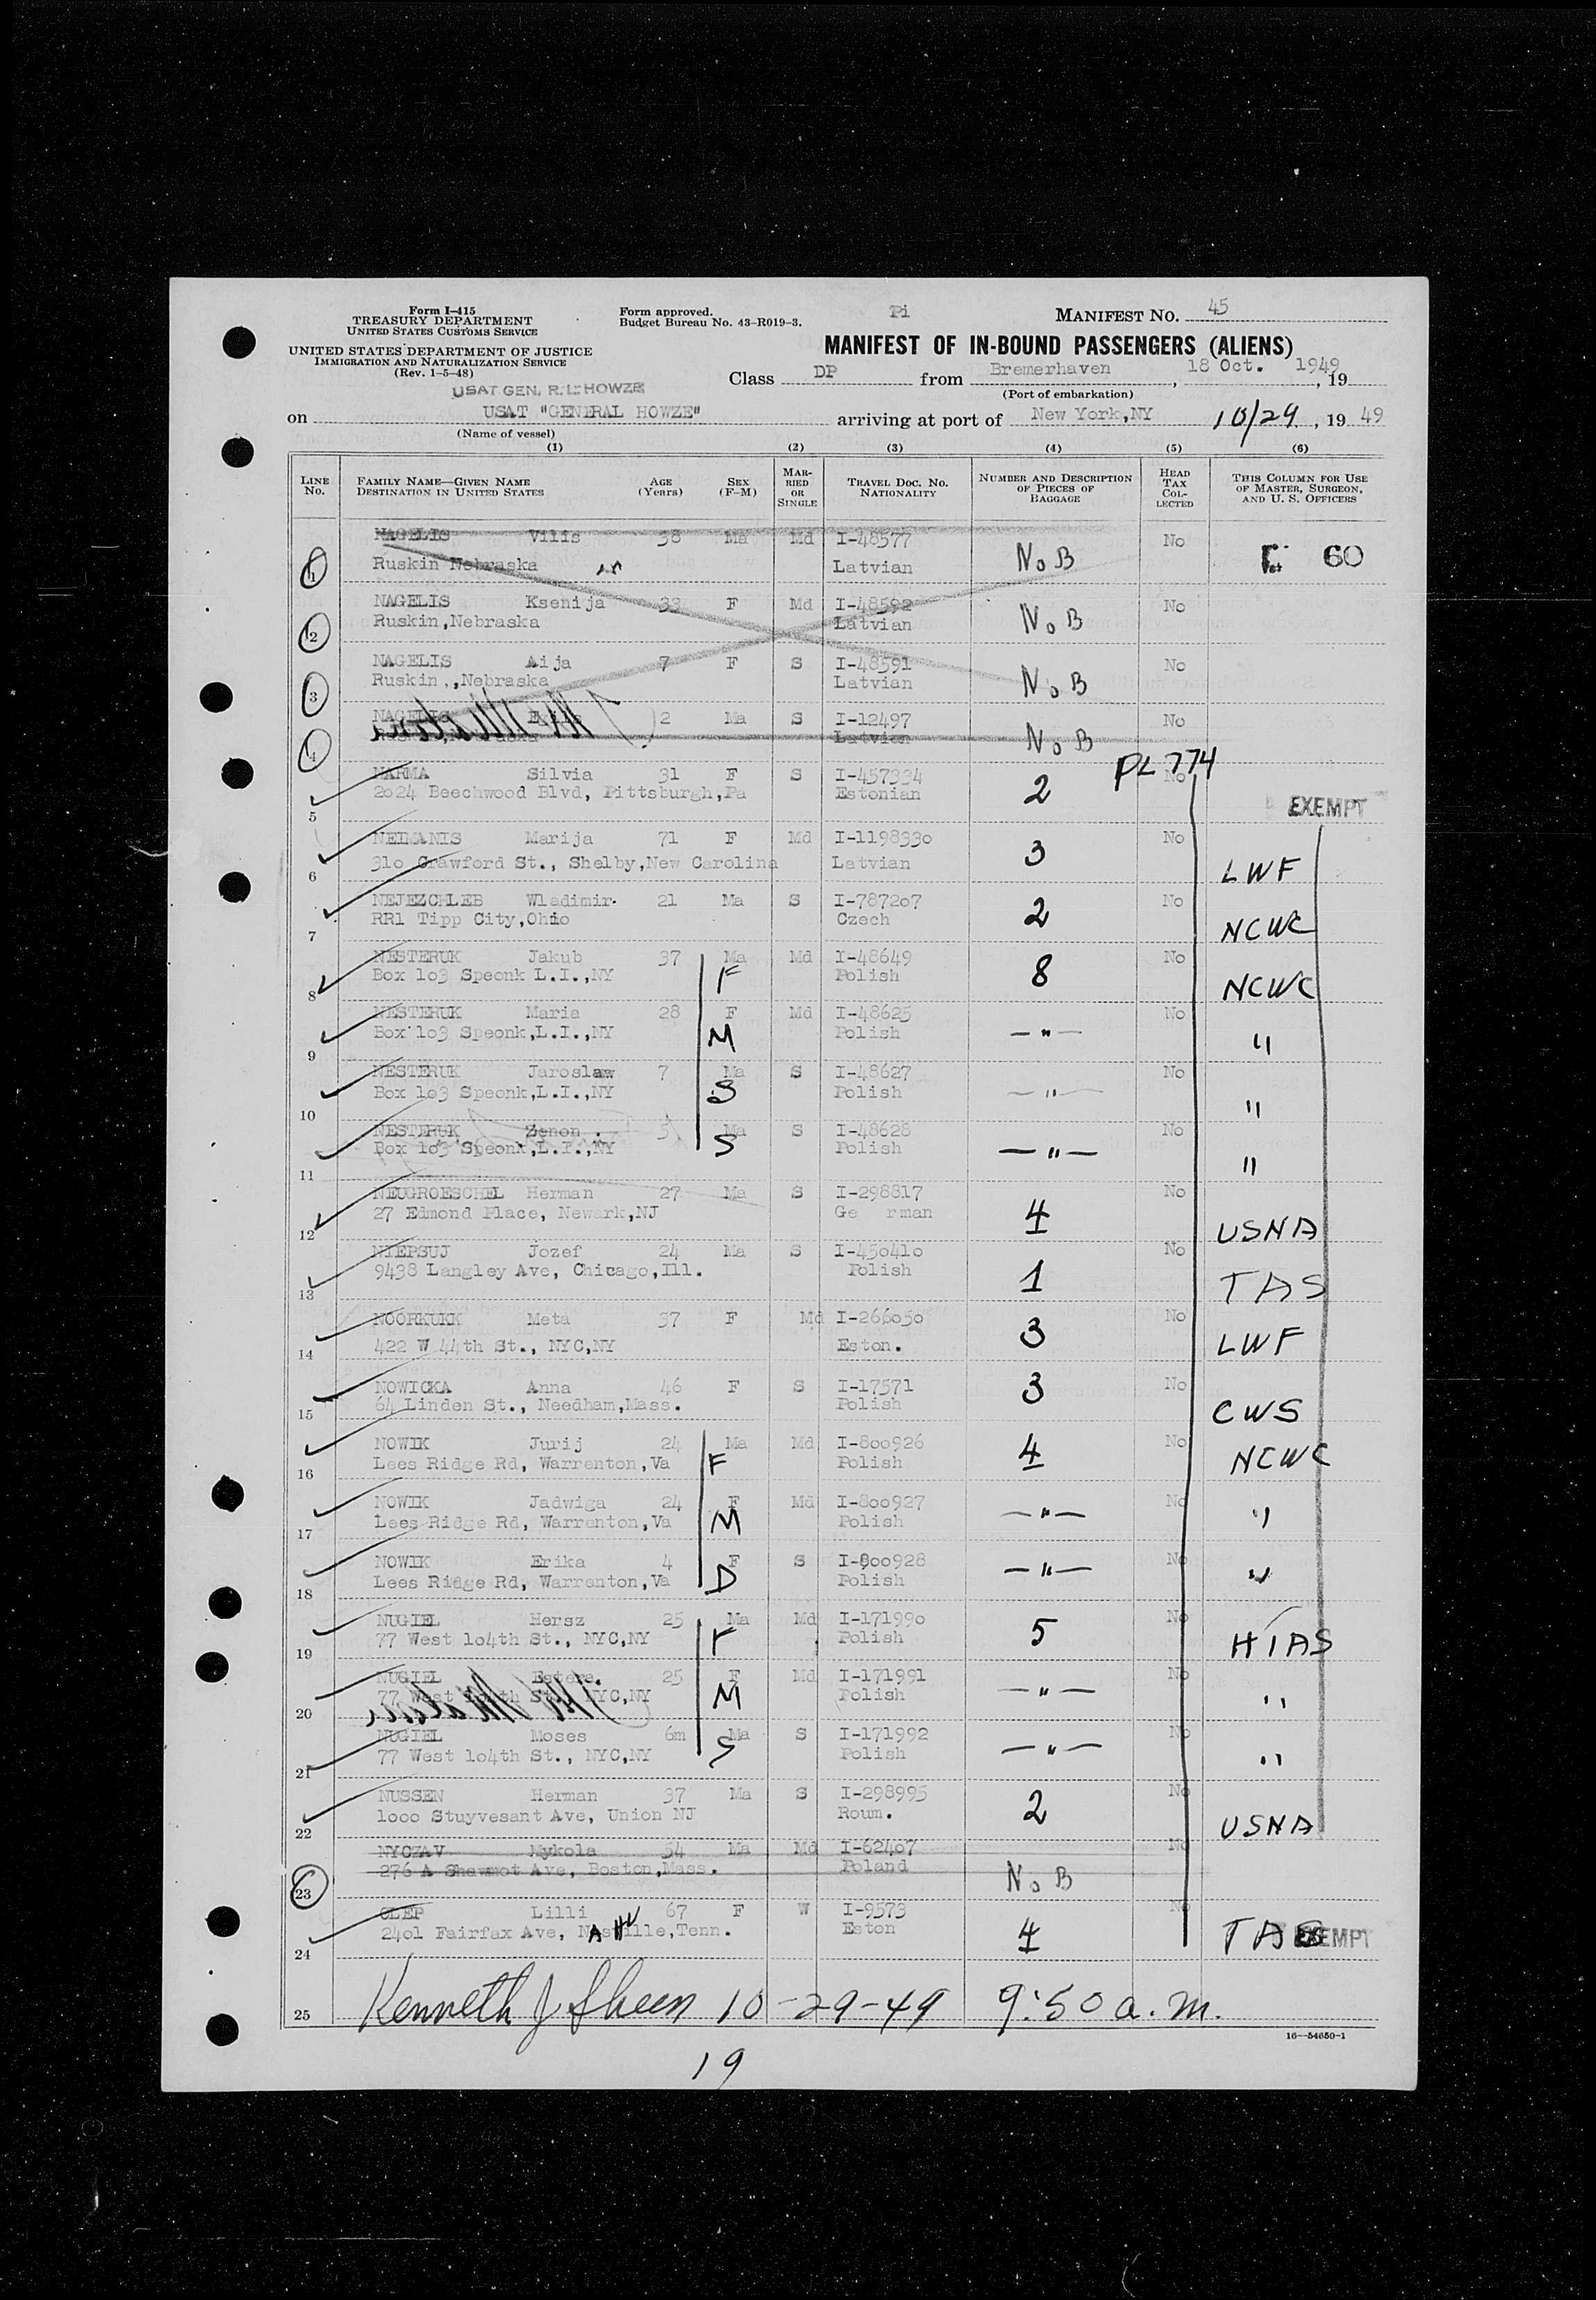 Form I-415
TREASURY DEPARTMENT
UNITED STATES CUSTOMS SERVICE
UNITED STATES DEPARTMENT OF JUSTICE
IMMIGRATION AND NATURALIZATION SERVICE
(Rev. 1-5-48)
Form approved.
Budget Bureau No. 43-R019-3.
Pi
MANIFEST NO. 45
MANIFEST OF IN-BOUND PASSENGERS (ALIENS)
Class DP from Bremerhaven, 18 Oct. 1949, 19
(Port of embarkation)
USAT GEN. R. L. HOWZE
on USAT "GENERAL HOWZE" arriving at port of New York,NY 10/29, 19 49
(Name of vessel)
(1) (2) (3) (4) (5) (6)
LINE NO. FAMILY NAME—GIVEN NAME DESTINATION IN UNITED STATES AGE (Years) SEX (F-M) MARRIED OR SINGLE TRAVEL DOC. NO. NATIONALITY NUMBER AND DESCRIPTION OF PIECES OF BAGGAGE HEAD TAX COLLECTED THIS COLUMN FOR USE OF MASTER, SURGEON, AND U. S. OFFICERS
1 NAGELIS Vilis 38 Ma Md I-48577 No B No 60
Ruskin Nebraska Latvian
2 NAGELIS Ksenija 33 F Md I-48592 No B No
Ruskin,Nebraska Latvian
3 NAGELIS Aija 7 F S I-48591 No B No
Ruskin.,Nebraska Latvian
4 NAGELIS 2 Ma S I-12497 No B No
Latvian
PL 774
5 NARMA Silvia 31 F S I-457334 2 No EXEMPT
2o24 Beechwood Blvd, Pittsburgh,Pa Estonian
6 NEIMANIS Marija 71 F Md I-119833o 3 No LWF
31o Crawford St., Shelby,New Carolina Latvian
7 NEJEZCHLEB Wladimir 21 Ma S I-7872o7 2 No NCWC
RR1 Tipp City,Ohio Czech
8 NESTERUK Jakub 37 Ma F Md I-48649 8 No NCWC
Box 1o3 Speonk L.I.,NY Polish
9 NESTERUK Maria 28 F M Md I-48625 —"— No "
Box 1o3 Speonk,L.I.,NY Polish
10 NESTERUK Jaroslaw 7 Ma S S I-48627 —"— No "
Box 1o3 Speonk,L.I.,NY Polish
11 NESTERUK Zenon 5 Ma S S I-48628 —"— No "
Box 1o3 Speonk,L.I.,NY Polish
12 NEUGROESCHEL Herman 27 Ma S I-298817 4 No USNA
27 Edmond Place, Newark,NJ Ge rman
13 NIEPSUJ Jozef 24 Ma S I-45o41o 1 No TAS
9438 Langley Ave, Chicago,Ill. Polish
14 NOORKUKK Meta 57 F Md I-266o5o 3 No LWF
422 W 44th St., NYC,NY Eston.
15 NOWICKA Anna 46 F S I-17571 3 No CWS
64 Linden St., Needham,Mass. Polish
16 NOWIK Jurij 24 Ma F Md I-8oo926 4 No NCWC
Lees Ridge Rd, Warrenton,Va Polish
17 NOWIK Jadwiga 24 F M Md I-8oo927 —"— No "
Lees Ridge Rd, Warrenton,Va Polish
18 NOWIK Erika 4 F D S I-8oo928 —"— No "
Lees Ridge Rd, Warrenton,Va Polish
19 NUGIEL Hersz 25 Ma F Md I-17199o 5 No HIAS
77 West 1o4th St., NYC,NY Polish
20 NUGIEL Estera 25 F M Md I-171991 —"— No "
77 West 1o4th St., NYC,NY Polish
21 NUGIEL Moses 6m Ma S S I-171992 —"— No "
77 West 1o4th St., NYC,NY Polish
22 NUSSEN Herman 37 Ma S I-298995 2 No USNA
1ooo Stuyvesant Ave, Union NJ Roum.
23 NYCZAV Mykola 54 Ma Md I-624o7 No B No
276 A Shawmot Ave, Boston,Mass. Poland
24 OLEP Lilli 67 F W I-9573 4 No TAS EXEMPT
24o1 Fairfax Ave, Nashville,Tenn. Eston
25 Kenneth J Sheen 10-29-49 9:50 a.m.
16—54650-1
19